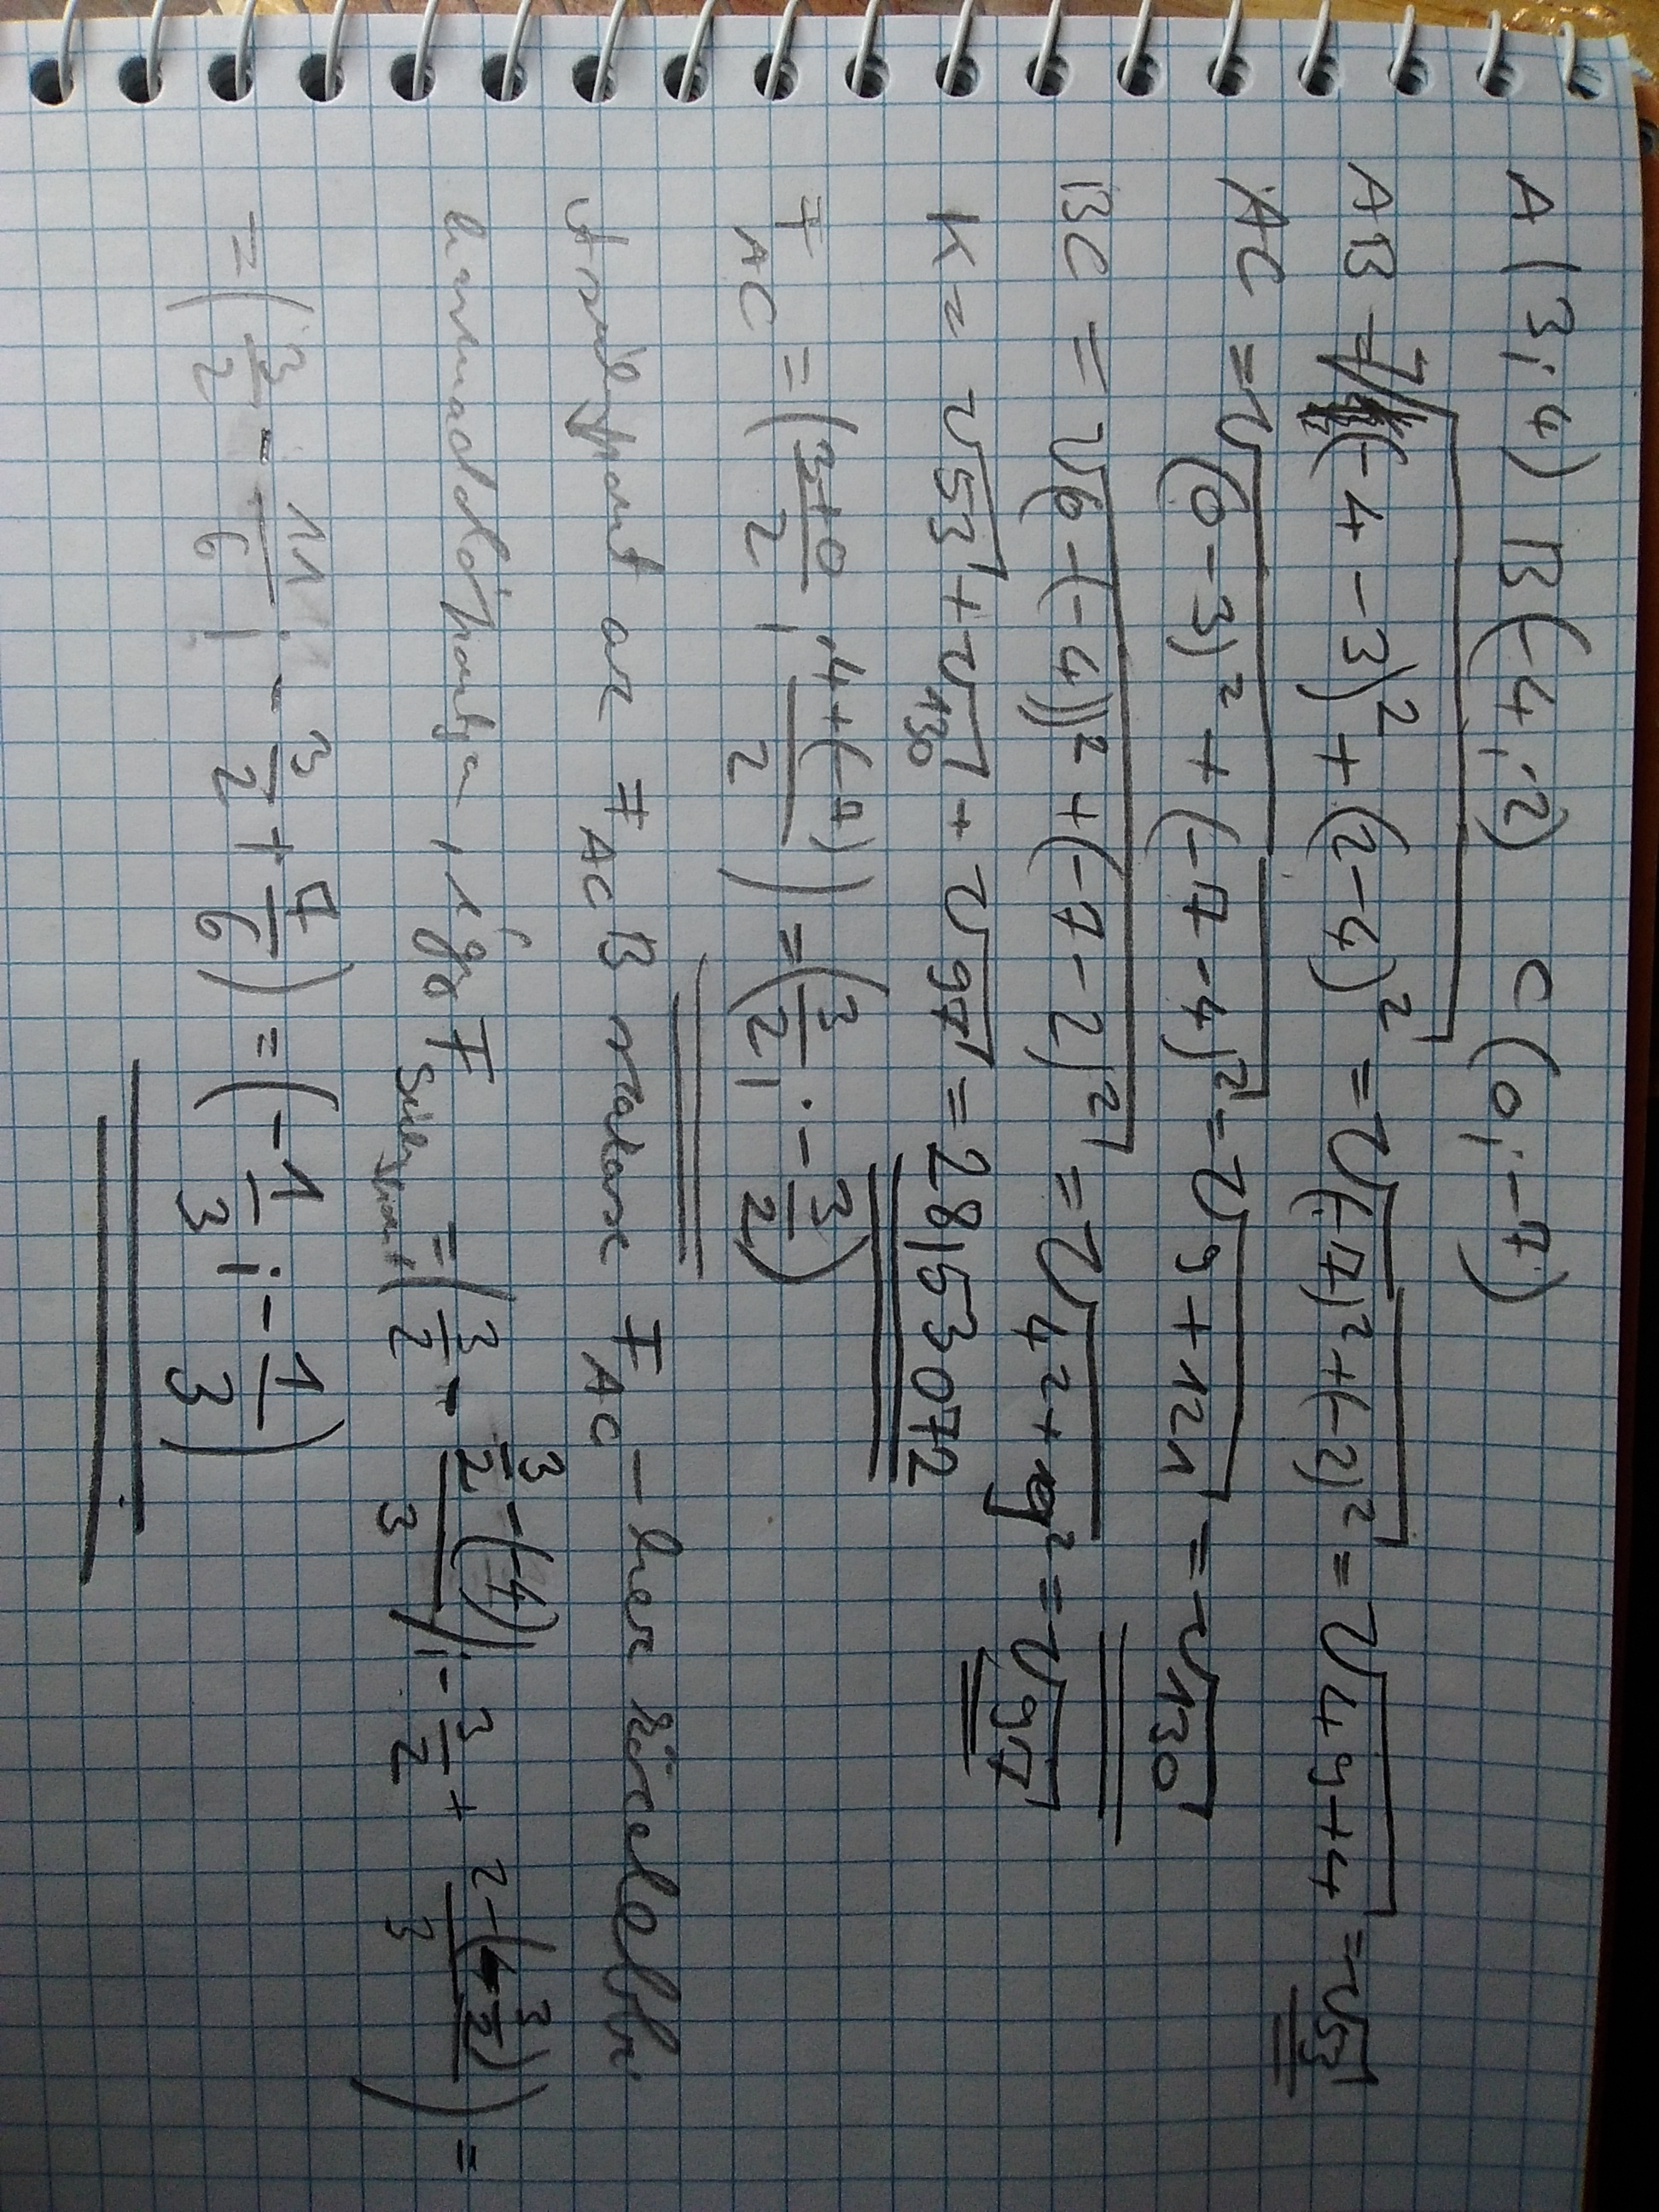 A(3;4) B(-4;2) C(0;-7)
AB = √((-4-3)²+(2-4)²) = √((-7)²+(-2)²) = √(49+4) = √53
AC = √((0-3)²+(-7-4)²) = √(9+121) = √130
BC = √(0-(-4))²+(-7-2)² = √(4²+9²) = √97
K = √53 + √130 + √97 = 28,53072
F_AC = (3+0/2 ; 4+(-7)/2) = (3/2 ; -3/2)
A súlypont az F_AC B szakasz F_AC-hez közelebbi
harmadolópontja, így F súlypont = (3/2 - 3/2-(-4)/3 ; -3/2 + 2-(-3/2)/3) =
= (3/2 - 11/6 ; -3/2 + 7/6) = (-1/3 ; -1/3)